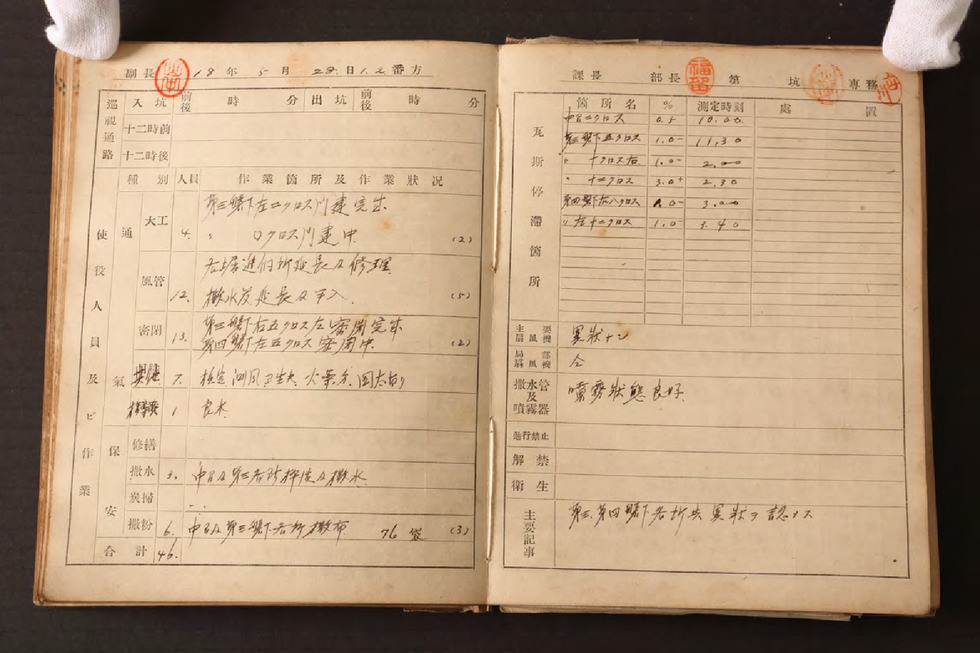 副長 18年5月29日1.2番方
巡視通路 入坑 前後 時 分 出坑 前後 時 分
十二時前
十二時後
使役人員及ビ作業
種別 人員 作業箇所及作業狀況
通氣
大工 4. 第三盤下左二クロス門建完成
〃 口クロス門建中 (2)
風管 12. 各堀進個所延長及修理
撒水及延長及手入 (5)
密閉 13. 第三盤下右五クロス左密閉完成
第四盤下左五クロス密閉中 (2)
7. 檢定 測風
1.
保安
修繕
撒水 3. 撒水
炭掃
撒粉 6. 中日及第三盤下各所撒布 76袋 (3)
合計 46.
課長 部長 福留 第 坑 專務
瓦斯停滯箇所
箇所名 % 測定時刻 處置
二クロス 0.5 10.00
第三盤下五クロス 1.0- 11.30
〃 十クロス右 1.0- 2.00
〃 十二クロス 3.0+ 2.30
第四盤下右八クロス 1.0- 3.00
〃 右十二クロス 1.0- 3.40
主要扇風機 異狀ナシ
局部扇風機 仝
撒水管及噴霧器 噴霧狀態良好
進行禁止
解禁
衛生
主要記事 第三、第四盤下各所共異狀ヲ認メス